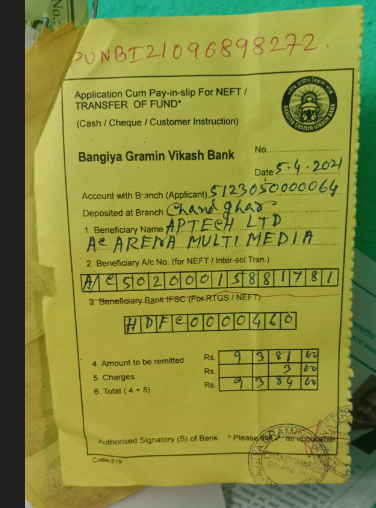 PUNBI21096898272.
Application Cum Pay-in-slip For NEFT /
TRANSFER OF FUND*
(Cash / Cheque / Customer Instruction)
BANGIYA GRAMIN VIKASH BANK
Bangiya Gramin Vikash Bank
No
Date 5.4.2021
Account with Branch (Applicant) 5123050000064
Deposited at Branch Chandghar
1. Beneficiary Name APTECH LTD
Ac ARENA MULTIMEDIA
2. Beneficiary A/c No. (for NEFT / Inter-sol Trxn.)
A/C 50200015881781
3. Beneficiary Bank IFSC (For RTGS / NEFT)
HDFC0000460
4. Amount to be remitted Rs. 9 381 00
5. Charges. Rs. 3 00
6. Total (4 + 5) Rs. 9 384 00
Authorised Signatory (S) of Bank * Please as applicable